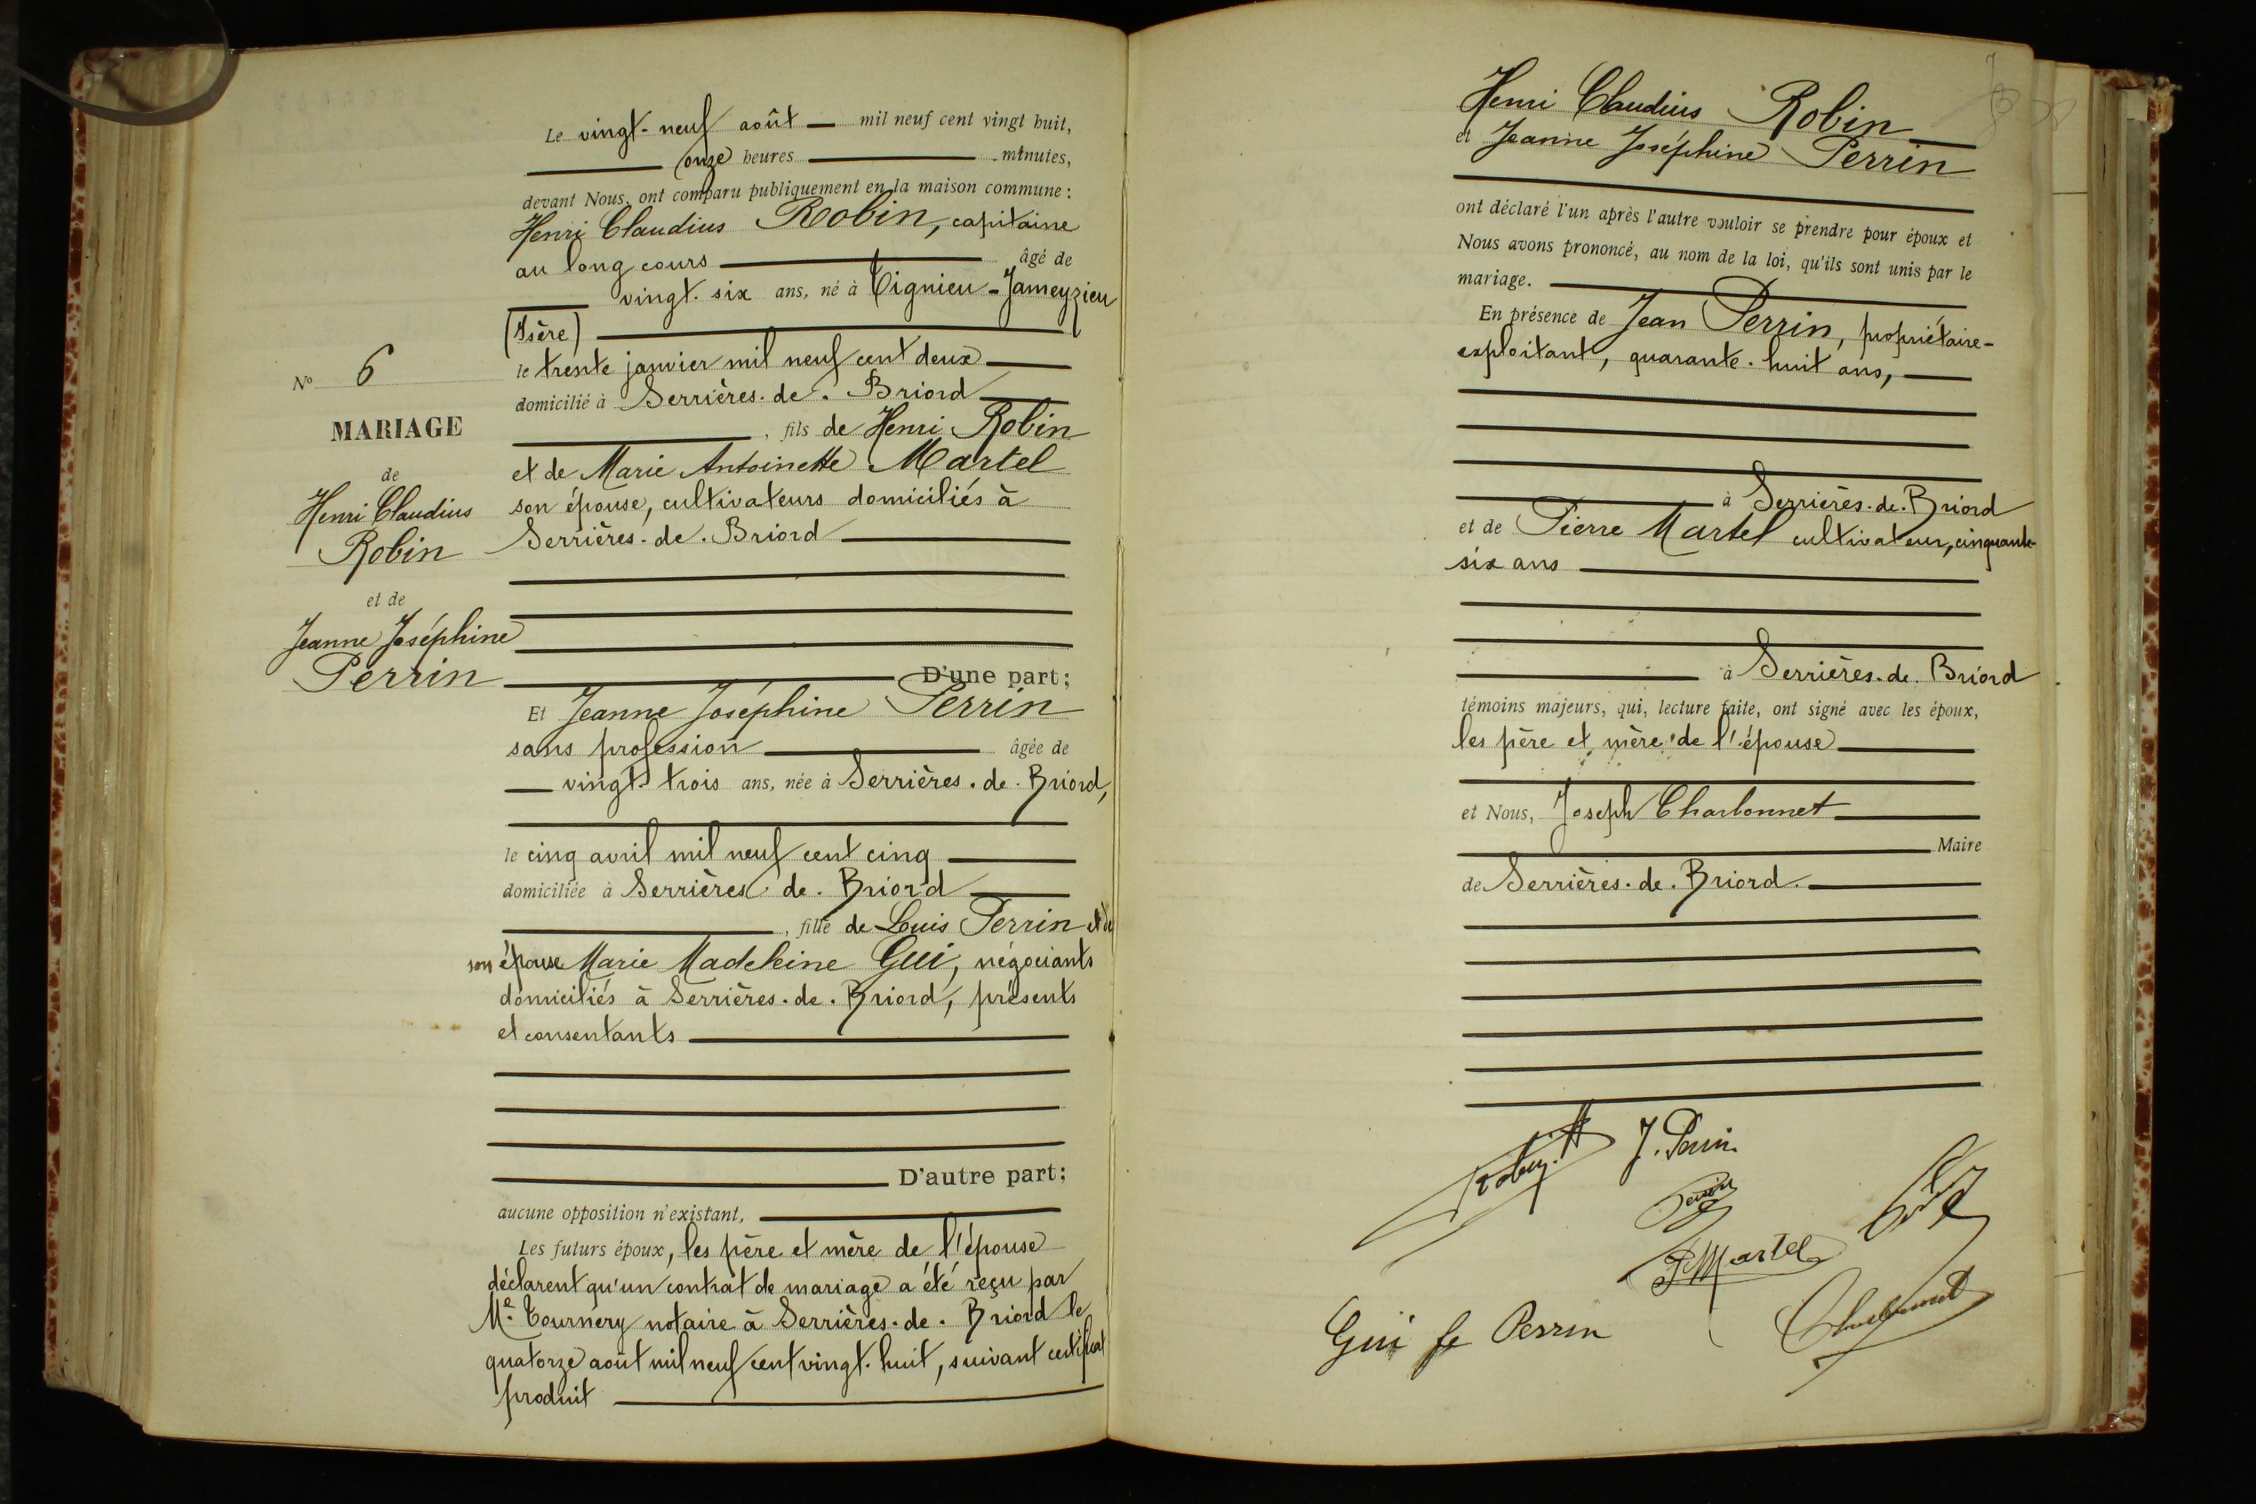 Le vingt-neuf août mil neuf cent vingt huit,
onze heures minutes,
devant Nous, ont comparu publiquement en la maison commune :
Henri Claudius Robin, capitaine
au long cours âgé de
vingt-six ans, né à Tignieu-Jameyzieu
(Isère)
le trente janvier mil neuf cent deux
domicilié à Serrières-de-Briord
, fils de Henri Robin
et de Marie Antoinette Martel
son épouse, cultivateurs domiciliés à
Serrières-de-Briord
D'une part;
Nº 6
MARIAGE
de
Henri Claudius
Robin
et de
Jeanne Joséphine
Perrin
Et Jeanne Joséphine Perrin
sans profession âgée de
vingt-trois ans, née à Serrières-de-Briord,
le cinq avril mil neuf cent cinq
domiciliée à Serrières-de-Briord
, fille de Louis Perrin et de
son épouse Marie Madeleine Gui, négociants
domiciliés à Serrières-de-Briord, présents
et consentants
D'autre part;
aucune opposition n'existant,
Les futurs époux, les père et mère de l'épouse
déclarent qu'un contrat de mariage a été reçu par
Me Tournery notaire à Serrières-de-Briord le
quatorze août mil neuf cent vingt-huit, suivant certificat
produit
Henri Claudius Robin
et Jeanne Joséphine Perrin
ont déclaré l'un après l'autre vouloir se prendre pour époux et
Nous avons prononcé, au nom de la loi, qu'ils sont unis par le
mariage.
En présence de Jean Perrin, propriétaire-
exploitant, quarante-huit ans,
à Serrières-de-Briord
et de Pierre Martel cultivateur, cinquante-
six ans
à Serrières-de-Briord
témoins majeurs, qui, lecture faite, ont signé avec les époux,
les père et mère de l'épouse
et Nous, Joseph Charbonnet
Maire
de Serrières-de-Briord.
Robin. H
J. Perrin
Perrin
P Martel
Gui fe Perrin
Charbonnet